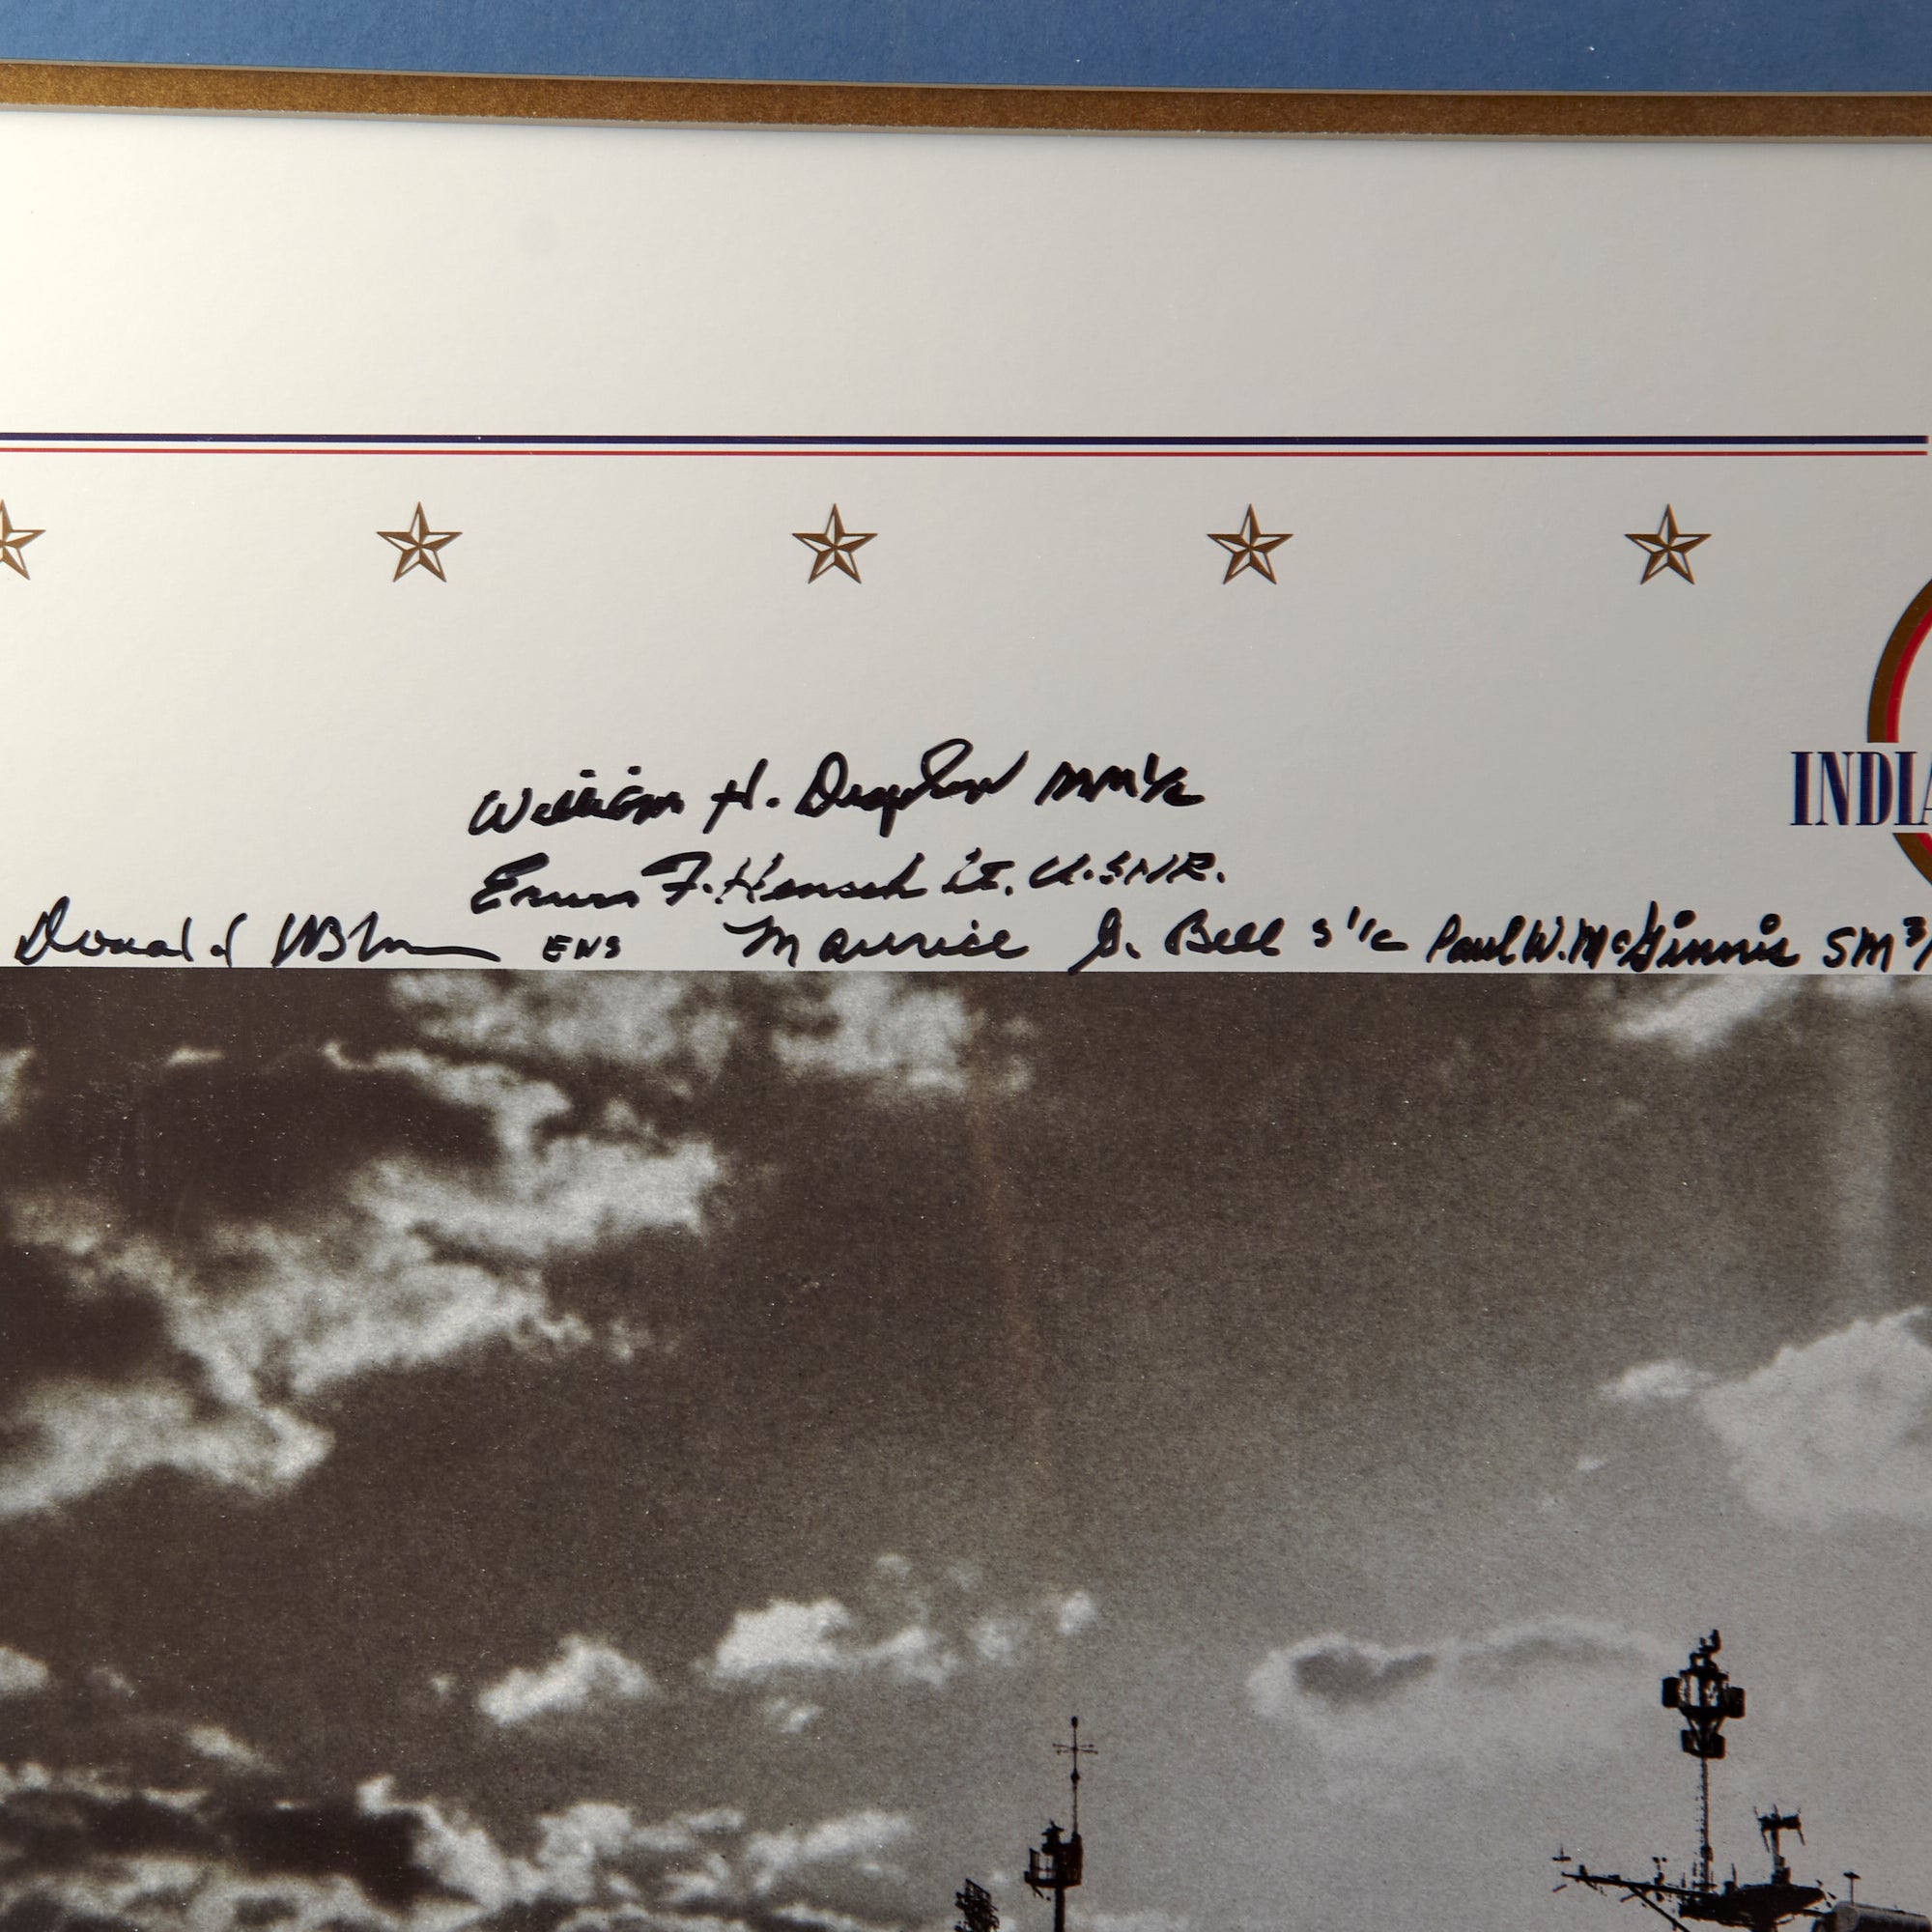 INDIA
William H. Drayton MM1/c
Erwin F. Hensch Lt. U.S.N.R.
Donald Blum ENS Maurice G. Bell S1/c Paul W. McGinnis SM3/